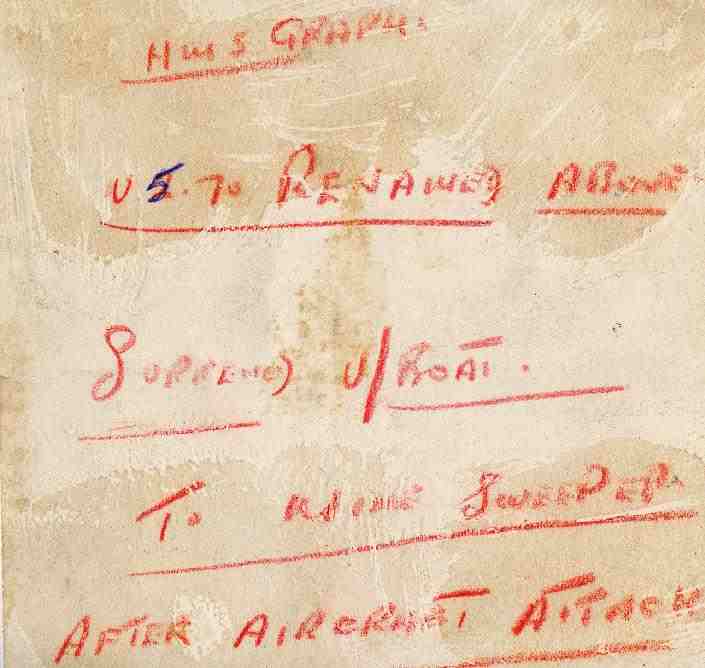 HMS GRAPH.
U 570 RENAMED ABOVE
SURREND U/BOAT.
TO MINE SWEEPER.
AFTER AIRCRAFT ATTACK